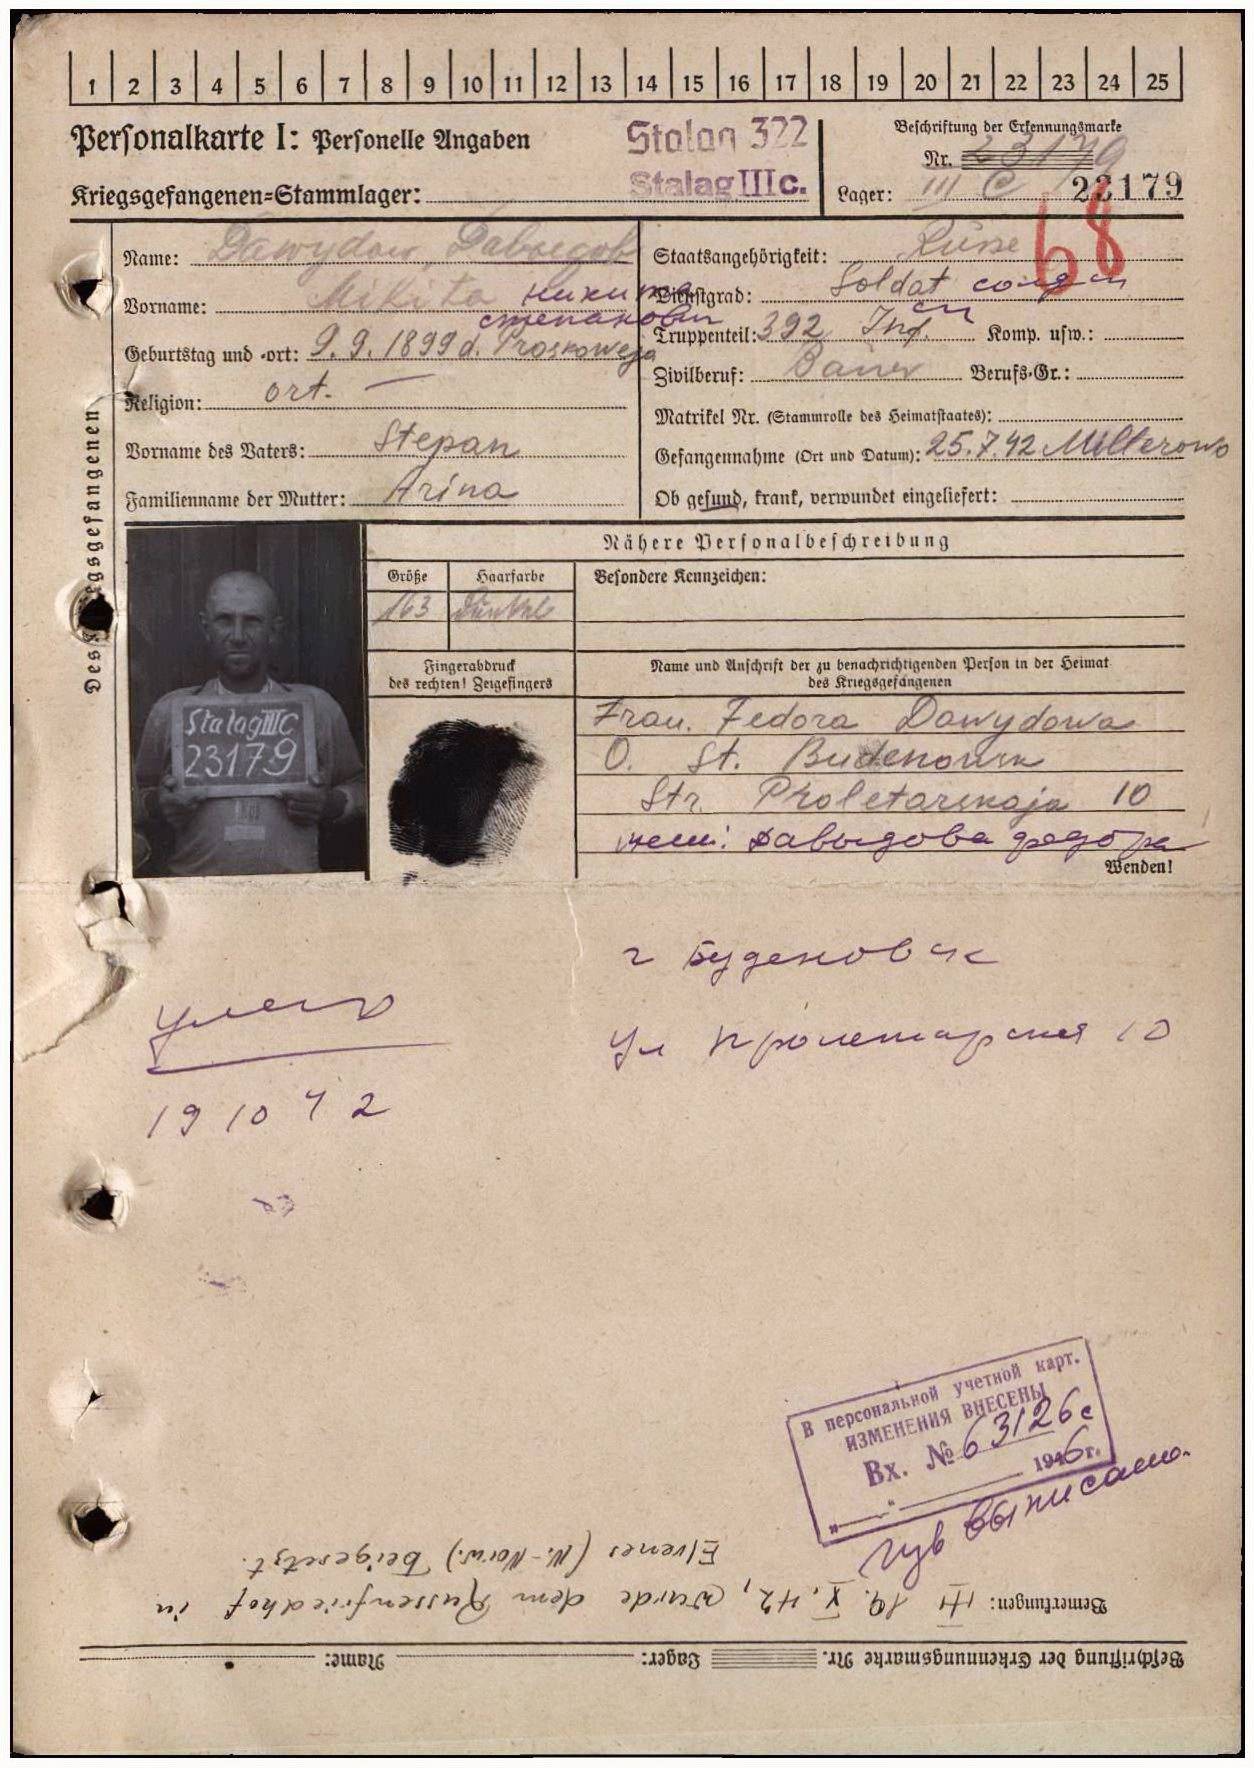 1 2 3 4 5 6 7 8 9 10 11 12 13 14 15 16 17 18 19 20 21 22 23 24 25
Personalkarte I: Personelle Angaben
Stalag 322
Beschriftung der Erkennungsmarke
Nr. 23179
Kriegsgefangenen-Stammlager:
Stalag III c.
Lager: III C 23179
68
Des Kriegsgefangenen
Name: Dawydow, Давыдов
Vorname: Mikita Никита
степанович
Geburtstag und -ort: 9.9.1899 d. Proskoweja
Religion: ort. —
Vorname des Vaters: Stepan
Familienname der Mutter: Arina
Staatsangehörigkeit: Russe
Dienstgrad: Soldat солдат
Truppenteil: 392 Inf. сп Komp. usw.:
Zivilberuf: Bauer Berufs-Gr.:
Matrikel Nr. (Stammrolle des Heimatstaates):
Gefangennahme (Ort und Datum): 25.7.42 Millerowo
Ob gesund, krank, verwundet eingeliefert:
Stalag III C
23179
Nähere Personalbeschreibung
Größe Haarfarbe Besondere Kennzeichen:
163 Dunkel
Fingerabdruck
des rechten! Zeigefingers
Name und Anschrift der zu benachrichtigenden Person in der Heimat
des Kriegsgefangenen
Frau. Fedora Dawydowa
O. St. Budenowsk
Str. Proletarskaja 10
жена: Давыдова Федора
Wenden!
г Буденовск
умер
ул Пролетарская 10
19 10 42
В персональной учетной карт.
ИЗМЕНЕНИЯ ВНЕСЕНЫ
Вх. № 63126с
"—" 1946 г.
выписано.
Bemerkungen: 19. X. 42, wurde dem Russenfriedhof in
Elvenes (N.-Norw.) beigesetzt.
Beschriftung der Erkennungsmarke Nr. Lager: Name: